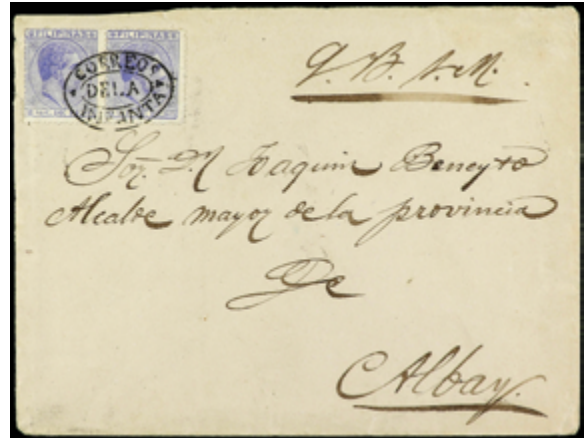 FILIPINAS FILIPINAS
CORREOS
DE LA
INFANTA
Q. B. S. M.
Sor. Dn. Joaquin Beneyto
Alcalde mayor de la provincia
De
Albay.